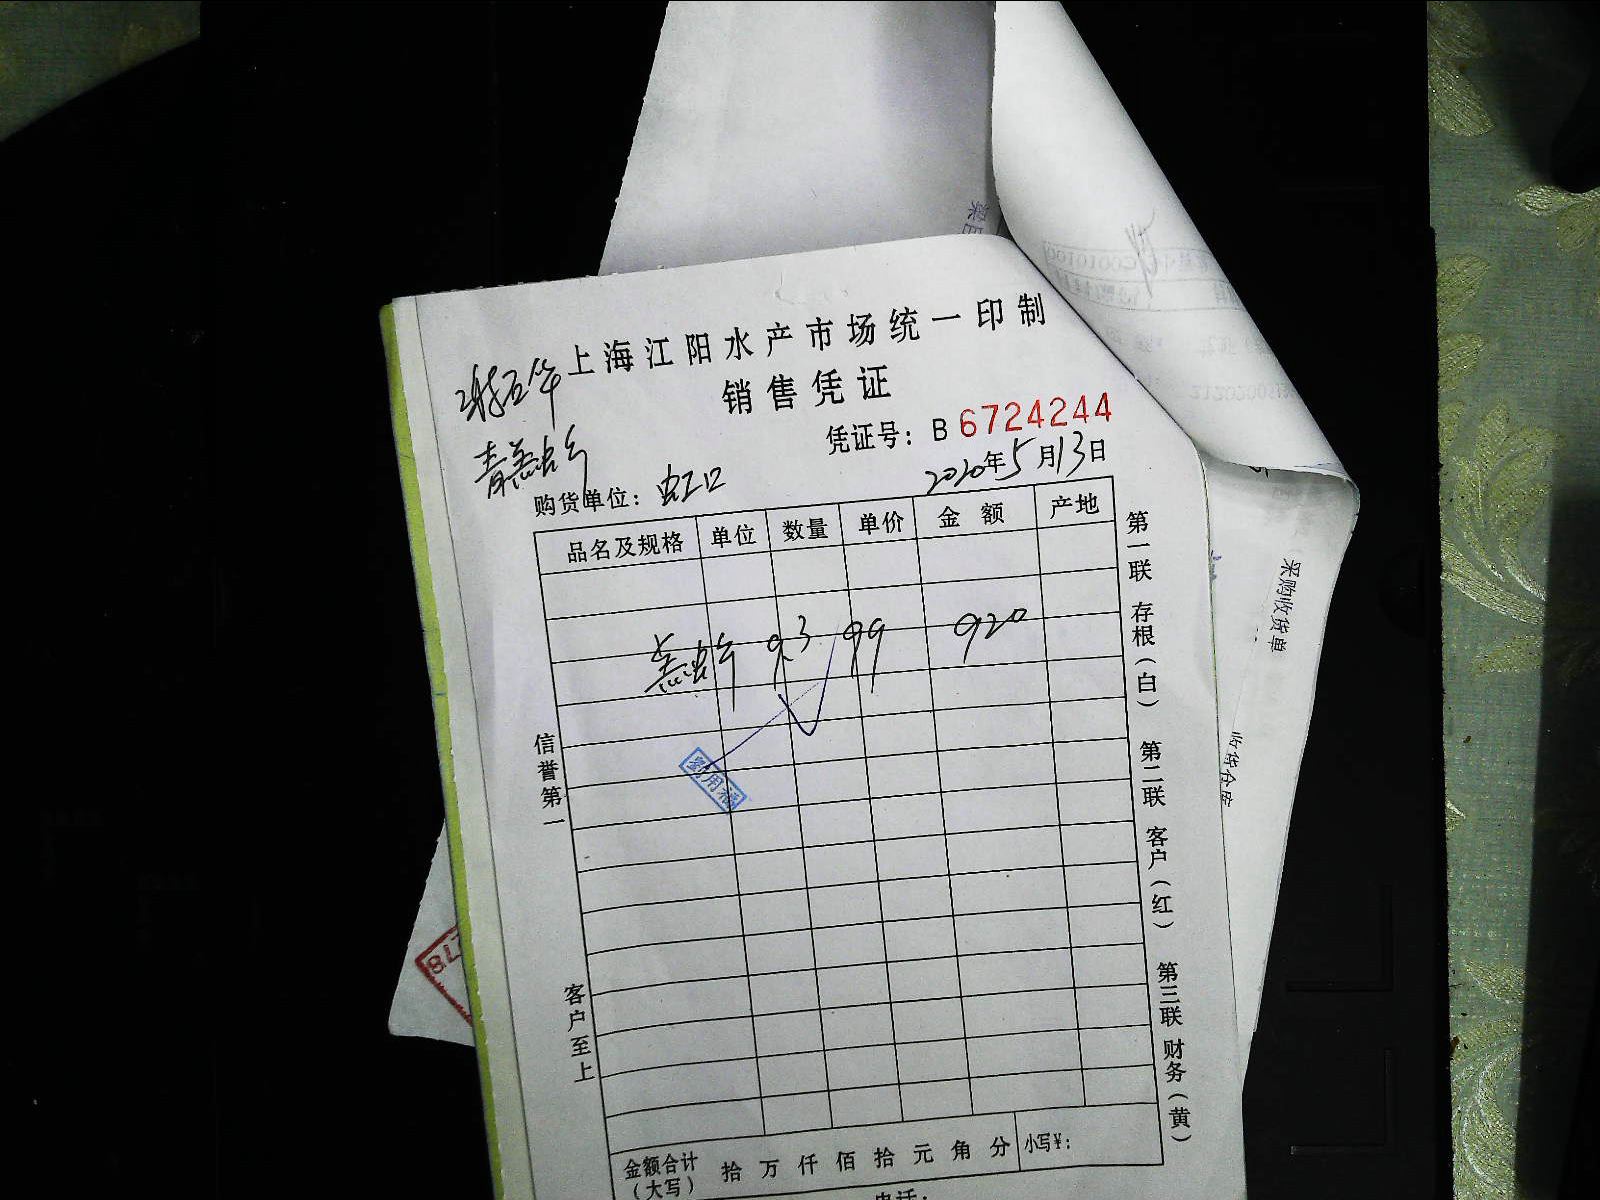 上海江阳水产市场统一印制
销售凭证
凭证号：B 6724244
2020年5月13日
购货单位：虹口
品名及规格 单位 数量 单价 金额 产地
羔蟹 9.3 99 920
信誉第一
客户至上
第一联 存根（白） 第二联 客户（红） 第三联 财务（黄）
金额合计（大写） 拾 万 仟 佰 拾 元 角 分 小写¥：
电话：
采购收货单
收货仓库